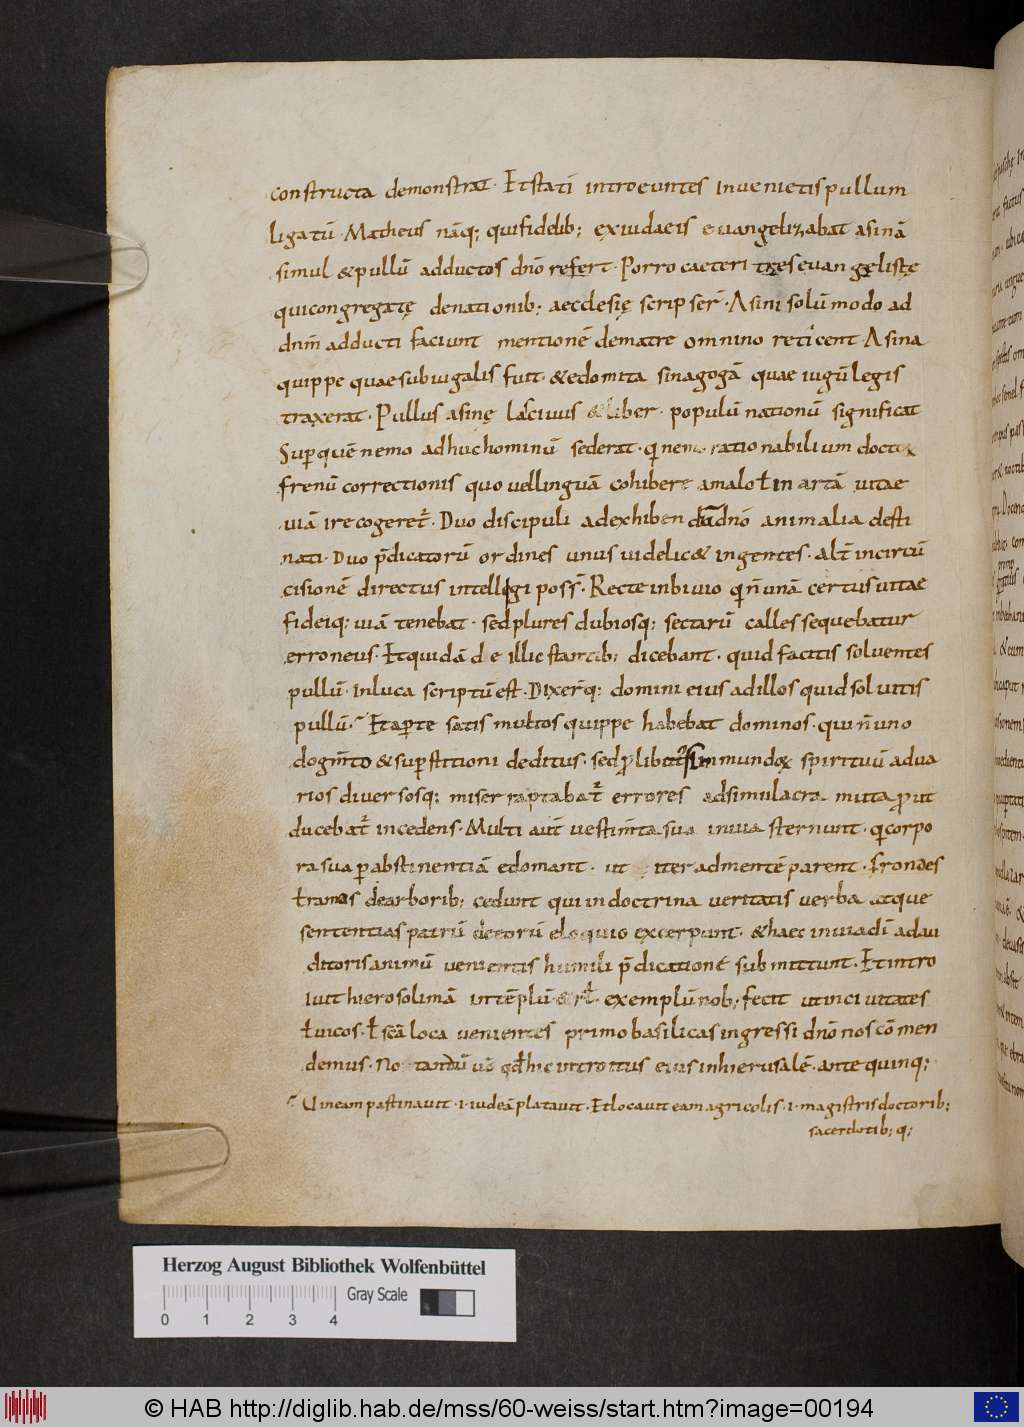 constructa demonstrat. Et stati introeuntes invenietis pullum
ligatū. Matheus nāq; qui fidelib; ex iudaeis evangelizabat asinā
simul & pullū adductos dn̄o refert. Porro caeteri tres evangelistę
qui congregatę de nationib; aecclesię scripser̄. Asini solū modo ad
dnm̄ adducti faciunt mentionē de matre omnino reticent. Asina
quippe quae subiugalis fuit. & edomita sinagogā quae iugū legis
traxerat. Pullus asinę lascivus & liber. populū nationū significat
Sup quē nemo adhuc hominū sederat. q nemo rationabilium doctox
frenū correctionis quo vel linguā cohibere a malo ł in artā vitae
viā ire cogeret̄. Duo discipuli ad exhibendū dn̄o animalia desti
nati. Duo p̄dicatorū ordines unus videlic& in gentes. alt̄ in circū
cisionē directus intellegi poss̄. Recte in bivio q n̄ unā certus vitae
fideiq; viā tenebat. sed plures dubiosq; sectarū calles sequebatur
erroneus. Et quidā de illic stantib; dicebant. quid facitis solventes
pullū. In luca scriptū est. Dixer̄q; domini eius ad illos quid solvitis
pullū. Et apte satis multos quippe habebat dominos. qui n̄ uno
dogm̄to & superstitioni deditus. sed p libitu inmundox spirituū ad va
rios diversosq; miser raptabat̄ errores ad simulacra muta prout
ducebat̄ incedens. Multi aut̄ vestim̄ta sua in via sternunt. q corpo
ra sua p abstinentiā edomant. ut iter ad mentē parent. Frondes
ł ramos de arborib; cedunt qui in doctrina veritatis verba atque
sententias patrū de eorū eloquio excerpunt. & haec in via dī ad au
ditoris animū venientis humili p̄dicatione submittunt. Et intro
ivit hierosolimā in tēplū & rł. exemplū nob; fecit ut in civitates
ł vicos. ł scā loca venientes primo basilicas ingressi dn̄o nos cōmen
demus. Notandū vo qd hic introitus eius in hierusalē. ante quinq;
Vineam pastinavit .i. iudeā plātavit. Et locavit eam agricolis .i. magistris doctorib;
sacerdotib; q;
Herzog August Bibliothek Wolfenbüttel
Gray Scale
0 1 2 3 4
© HAB http://diglib.hab.de/mss/60-weiss/start.htm?image=00194